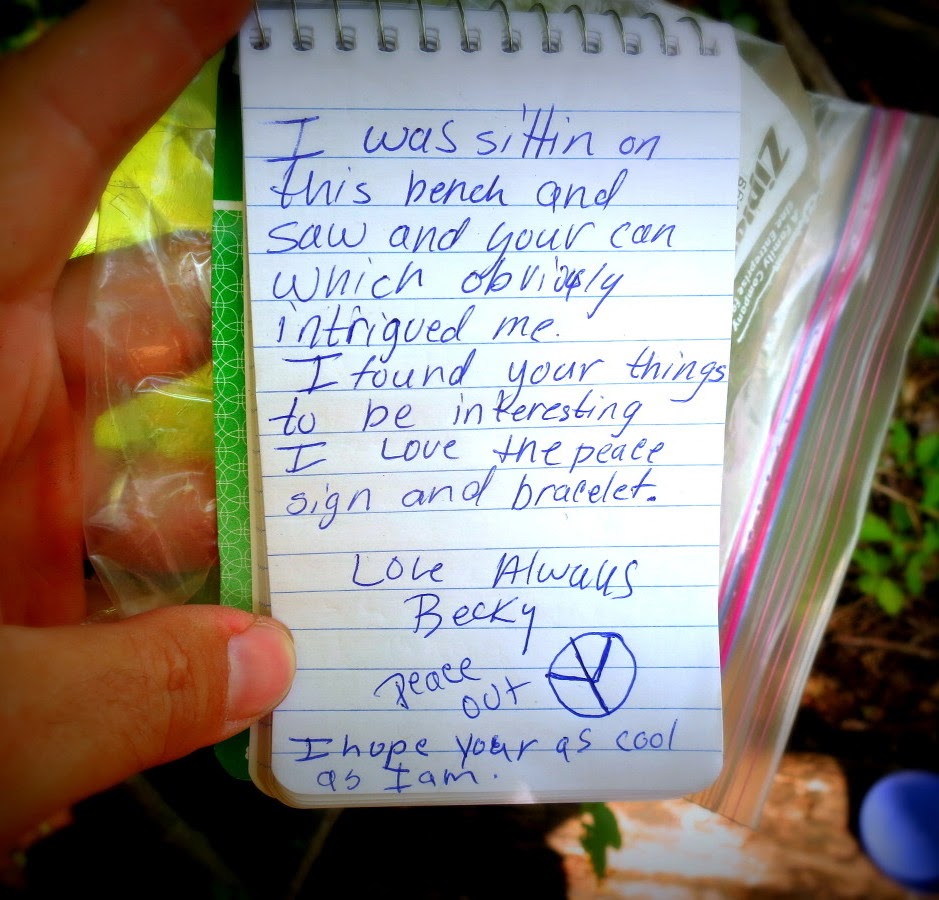 I was sittin on
this bench and
saw and your can
which obviously
intrigued me.
I found your things
to be interesting
I Love the peace
sign and bracelet.
Love Always
Becky
peace
out
I hope your as cool
as I am.
Ziploc